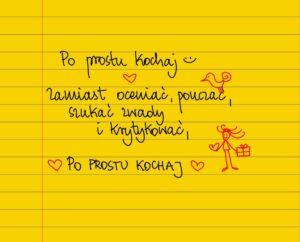 Po prostu kochaj
zamiast oceniać, pouczać,
szukać zwady
i krytykować,
Po PROSTU KOCHAJ